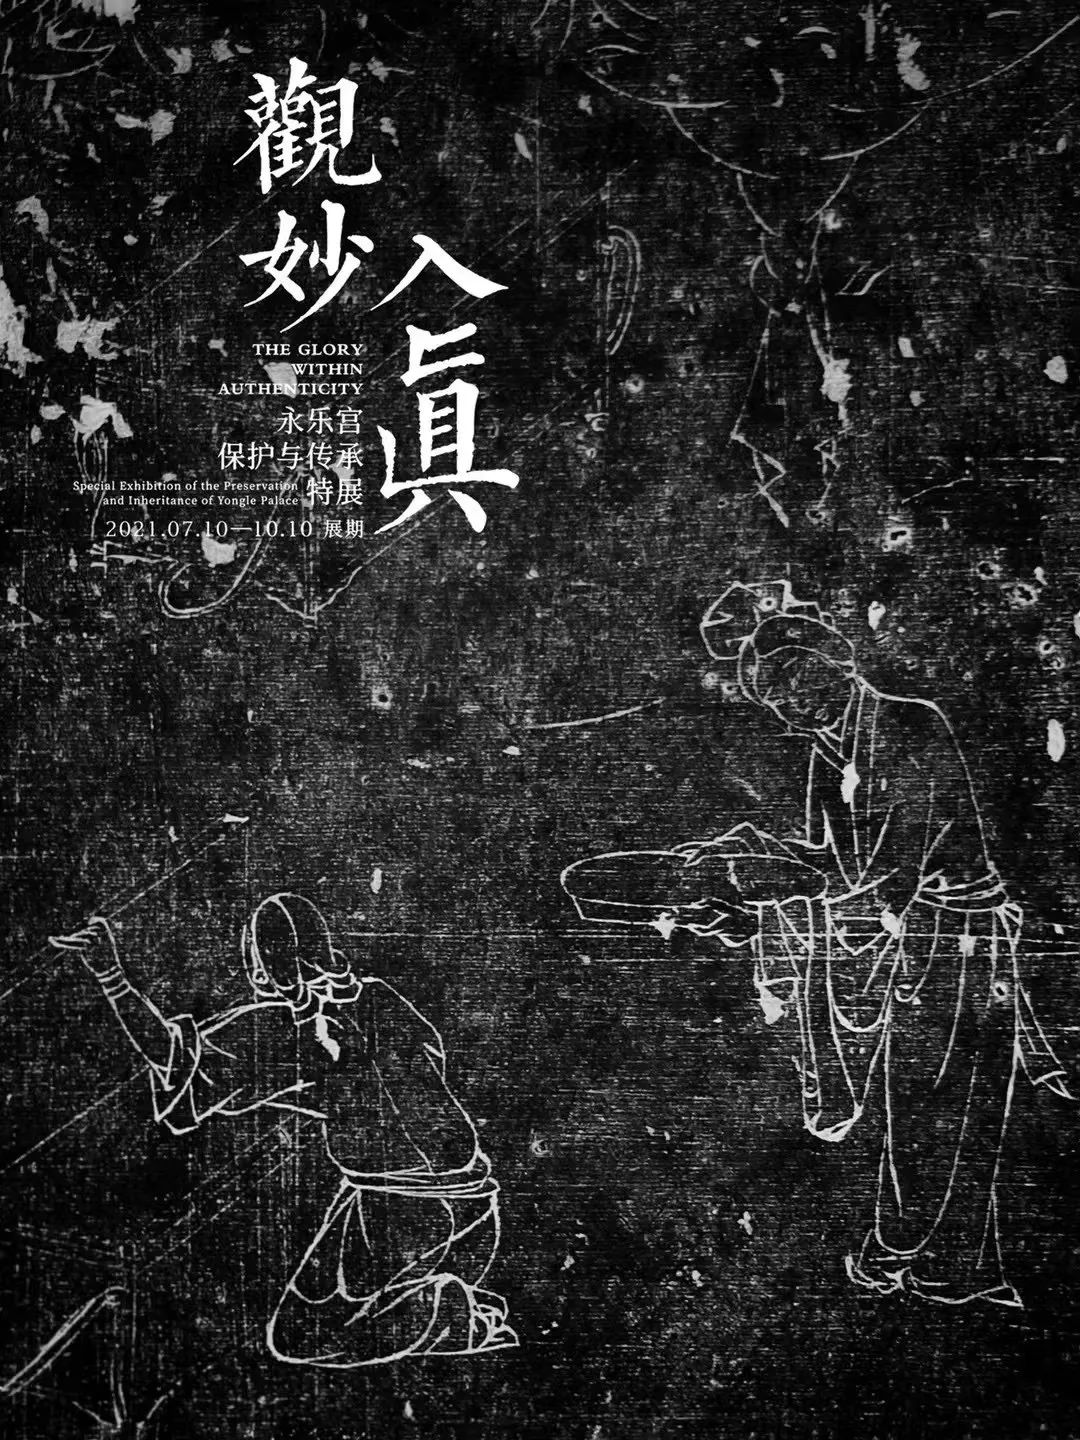 觀妙
入真
THE GLORY
WITHIN
AUTHENTICITY
永乐宫
保护与传承
特展
Special Exhibition of the Preservation
and Inheritance of Yongle Palace
2021.07.10—10.10 展期